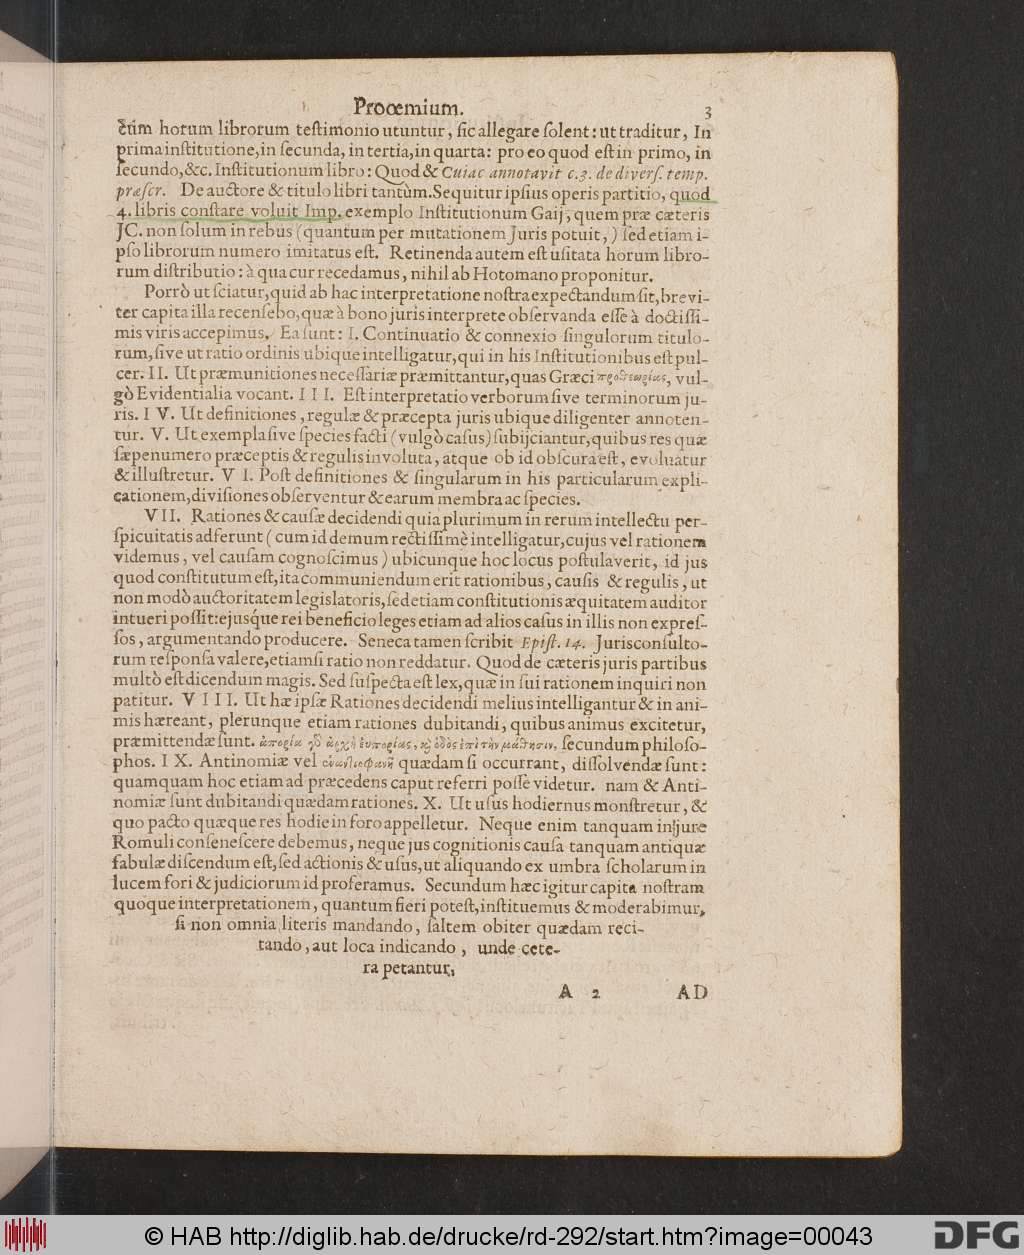 Proœmium. 3
cùm horum librorum teſtimonio utuntur, ſic allegare ſolent: ut traditur, In
prima inſtitutione, in ſecunda, in tertia, in quarta: pro eo quod eſt in primo, in
ſecundo, &c. Inſtitutionum libro: Quod & Cuiac annotavit c. 3. de diverſ. temp.
præſcr. De auctore & titulo libri tantùm. Sequitur ipſius operis partitio, quod
4. libris conſtare voluit Imp. exemplo Inſtitutionum Gaij, quem præ cæteris
JC. non ſolum in rebus (quantum per mutationem Juris potuit,) ſed etiam i-
pſo librorum numero imitatus eſt. Retinenda autem eſt uſitata horum libro-
rum diſtributio: à qua cur recedamus, nihil ab Hotomano proponitur.
Porrò ut ſciatur, quid ab hac interpretatione noſtra expectandum ſit, brevi-
ter capita illa recenſebo, quæ à bono juris interprete obſervanda eſſe à doctiſſi-
mis viris accepimus. Ea ſunt: I. Continuatio & connexio ſingulorum titulo-
rum, ſive ut ratio ordinis ubique intelligatur, qui in his Inſtitutionibus eſt pul-
cer. II. Ut præmunitiones neceſſariæ præmittantur, quas Græci προθεωρίας, vul-
gò Evidentialia vocant. III. Eſt interpretatio verborum ſive terminorum ju-
ris. IV. Ut definitiones, regulæ & præcepta juris ubique diligenter annoten-
tur. V. Ut exempla ſive ſpecies facti (vulgò caſus) ſubijciantur, quibus res quæ
ſæpenumero præceptis & regulis involuta, atque ob id obſcura eſt, evoluatur
& illuſtretur. VI. Poſt definitiones & ſingularum in his particularum expli-
cationem, diviſiones obſerventur & earum membra ac ſpecies.
VII. Rationes & cauſæ decidendi quia plurimum in rerum intellectu per-
ſpicuitatis adferunt (cum id demum rectiſſimè intelligatur, cujus vel rationem
videmus, vel cauſam cognoſcimus) ubicunque hoc locus poſtulaverit, id jus
quod conſtitutum eſt, ita communiendum erit rationibus, cauſis & regulis, ut
non modò auctoritatem legislatoris, ſed etiam conſtitutionis æquitatem auditor
intueri poſſit: ejuſq́ue rei beneficio leges etiam ad alios caſus in illis non expreſ-
ſos, argumentando producere. Seneca tamen ſcribit Epiſt. 14. Juriſconſulto-
rum reſponſa valere, etiamſi ratio non reddatur. Quod de cæteris juris partibus
multò eſt dicendum magis. Sed ſuſpecta eſt lex, quæ in ſui rationem inquiri non
patitur. VIII. Ut hæ ipſæ Rationes decidendi melius intelligantur & in ani-
mis hæreant, plerunque etiam rationes dubitandi, quibus animus excitetur,
præmittendæ ſunt. ἀπορία γδ ἀρχὴ εὐπορίας, κ̀ ὁδὸς ἐπὶ τὴν μάθησιν, ſecundum philoſo-
phos. IX. Antinomiæ vel ἐναντιοφανῆ quædam ſi occurrant, diſſolvendæ ſunt:
quamquam hoc etiam ad præcedens caput referri poſſe videtur. nam & Anti-
nomiæ ſunt dubitandi quædam rationes. X. Ut uſus hodiernus monſtretur, &
quo pacto quæque res hodie in foro appelletur. Neque enim tanquam in jure
Romuli conſeneſcere debemus, neque jus cognitionis cauſa tanquam antiquæ
fabulæ diſcendum eſt, ſed actionis & uſus, ut aliquando ex umbra ſcholarum in
lucem fori & judiciorum id proferamus. Secundum hæc igitur capita noſtram
quoque interpretationem, quantum fieri poteſt, inſtituemus & moderabimur,
ſi non omnia literis mandando, ſaltem obiter quædam reci-
tando, aut loca indicando, unde cete-
ra petantur,
A 2 AD
© HAB http://diglib.hab.de/drucke/rd-292/start.htm?image=00043 DFG